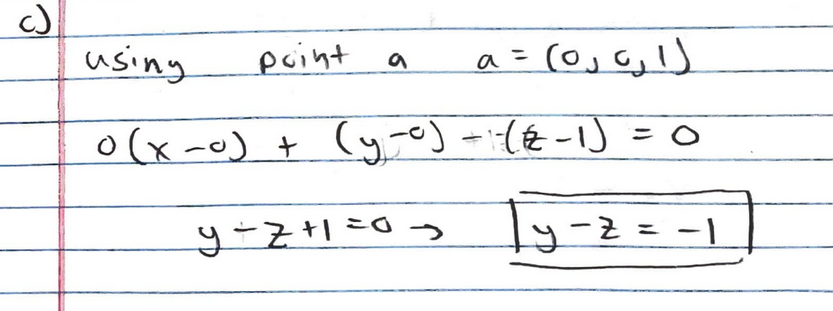 c)
using point a a = (0, 0, 1)
0(x-0) + (y-0) - (z-1) = 0
y-z+1=0 → y-z = -1